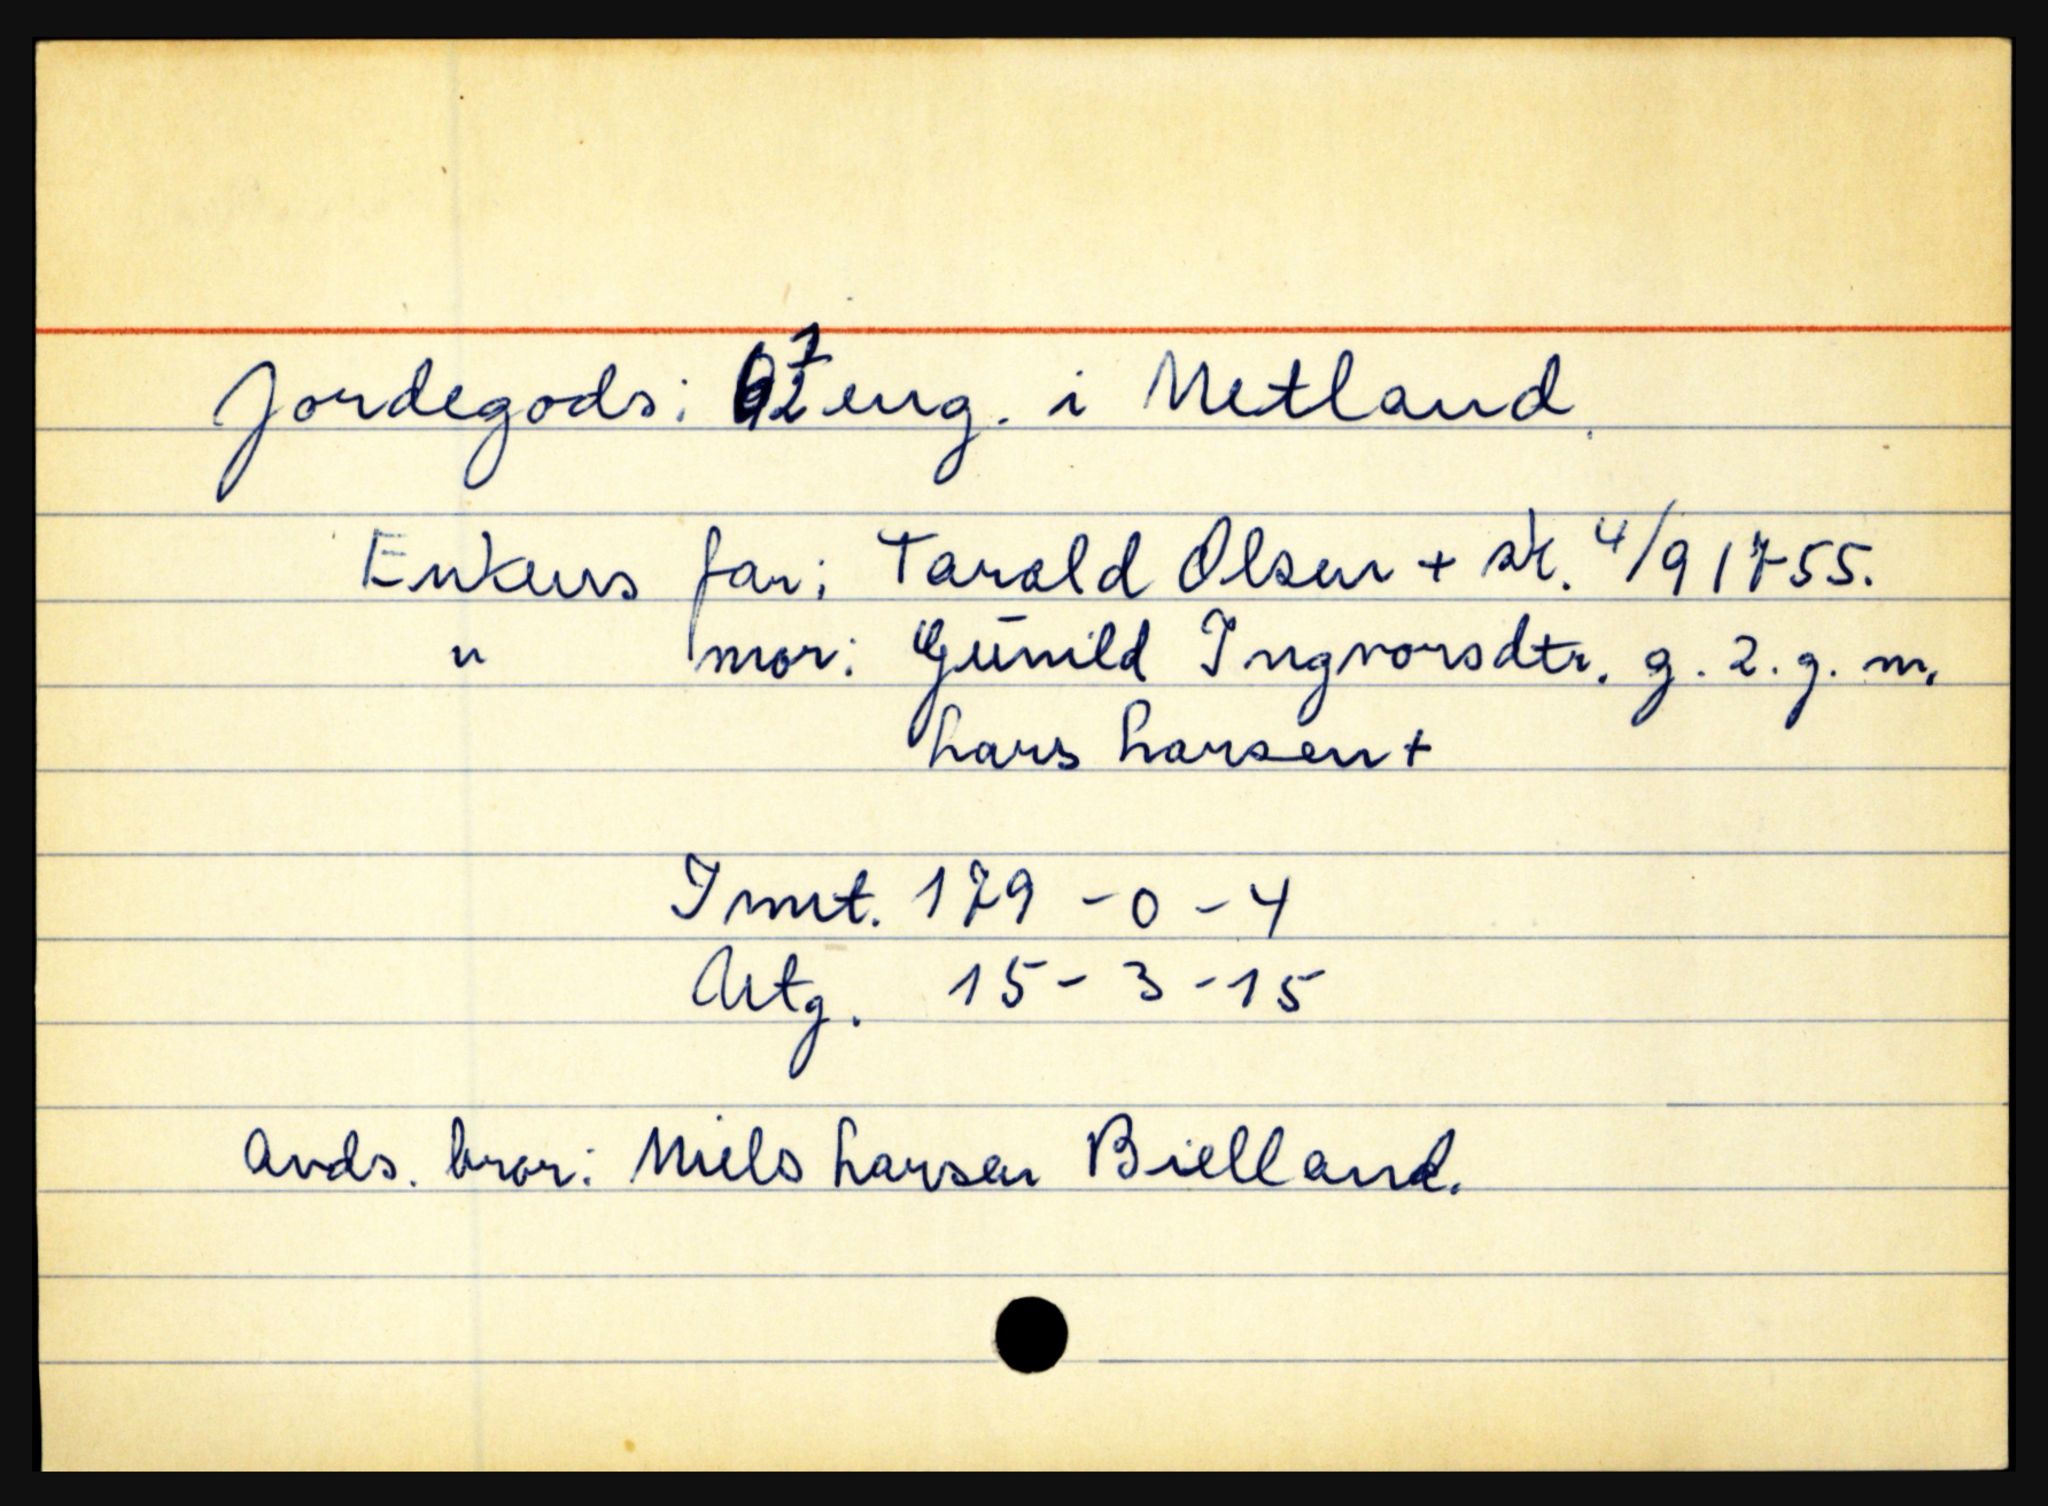 Jordegods: eng. i Netland.
Enkens far: Tarald Olsen + sk. 4/9 1755.
" mor: Gunild Ingvorsdtr. g. 2. g. m.
Lars Larsen +
Innt. 179 - 0 - 4
Utg. 15 - 3 - 15
Avds. bror: Niels Larsen Bielland.